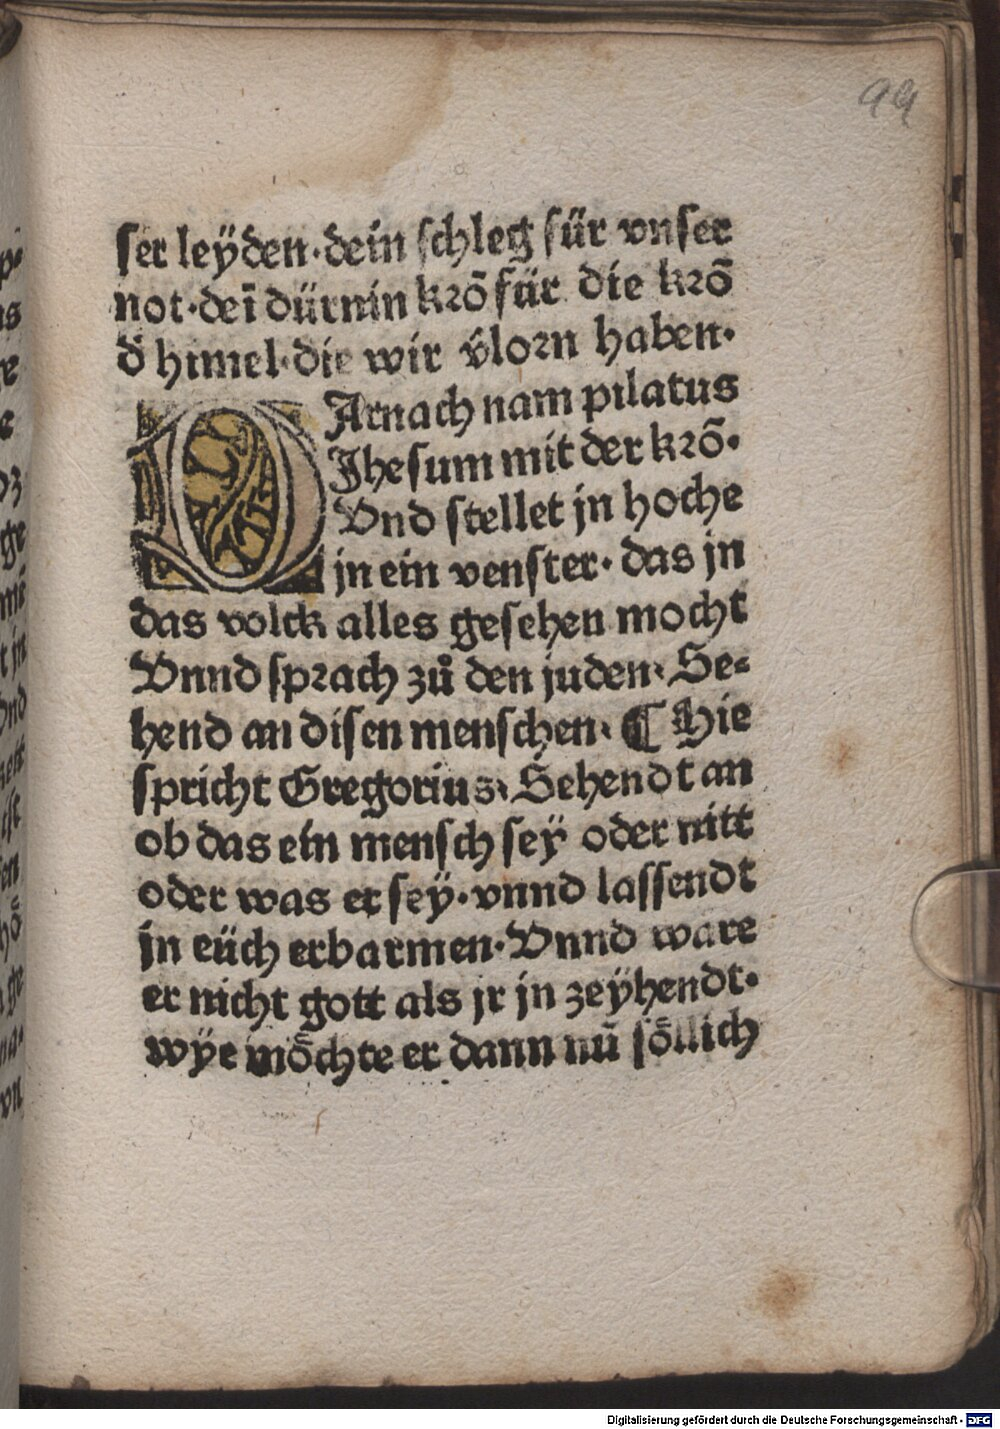 99
ser leÿden·dein schleg für vnser
not·dei̅ dürnin kro̅ für die kro̅
d̕ himel·die wir v̕lorn haben·
DArnach nam pilatus
Jhesum mit der kro̅·
Vnd stellet jn hoche
jn ein venster· das jn
das volck alles gesehen mocht
Vnnd sprach zů den juden· Se-
hend an disen menschen· ¶ Hie
spricht Gregorius· Sehendt an
ob das ein mensch seÿ oder nitt
oder was er seÿ·vnnd lassendt
jn eüch erbarmen·Vnnd ware
er nicht gott als jr jn zeÿhendt·
wÿe moͤchte er dann nu̅ soͤllich
Digitalisierung gefördert durch die Deutsche Forschungsgemeinschaft - DFG